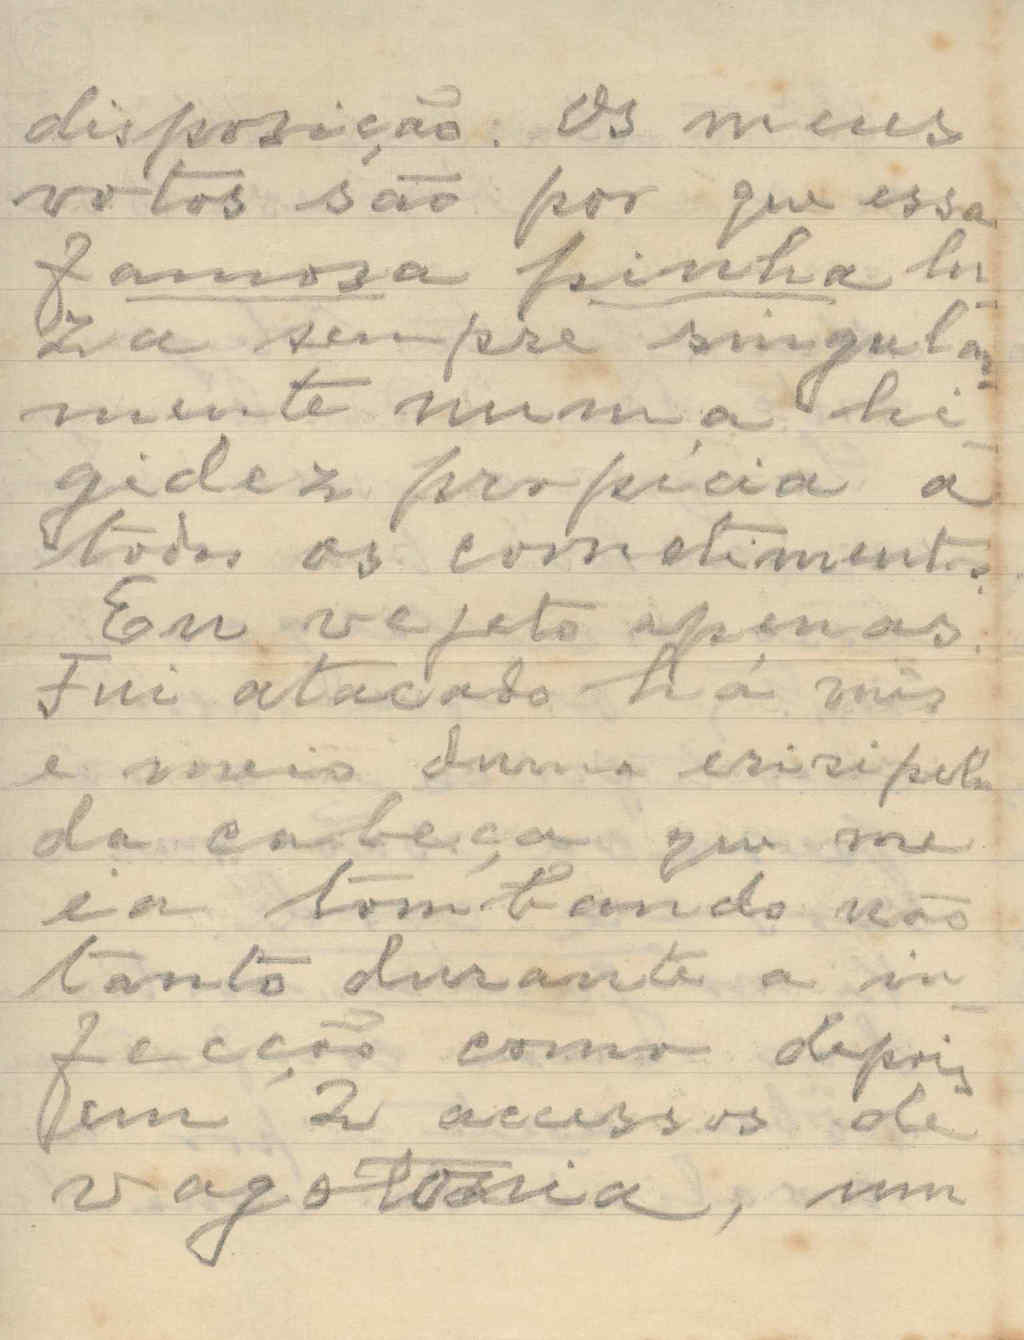 disposição. Os meus
votos são por que essa
famosa pinha lu-
za sempre singular-
mente numa hi-
gidez propícia a
todos os cometimentos.
Eu vejeto apenas.
Fui atacado há mês
e meio duma erisipela
da cabeça que me
ia tombando não
tanto durante a in-
fecção como depois
em 2 accessos de
vagotonia, um